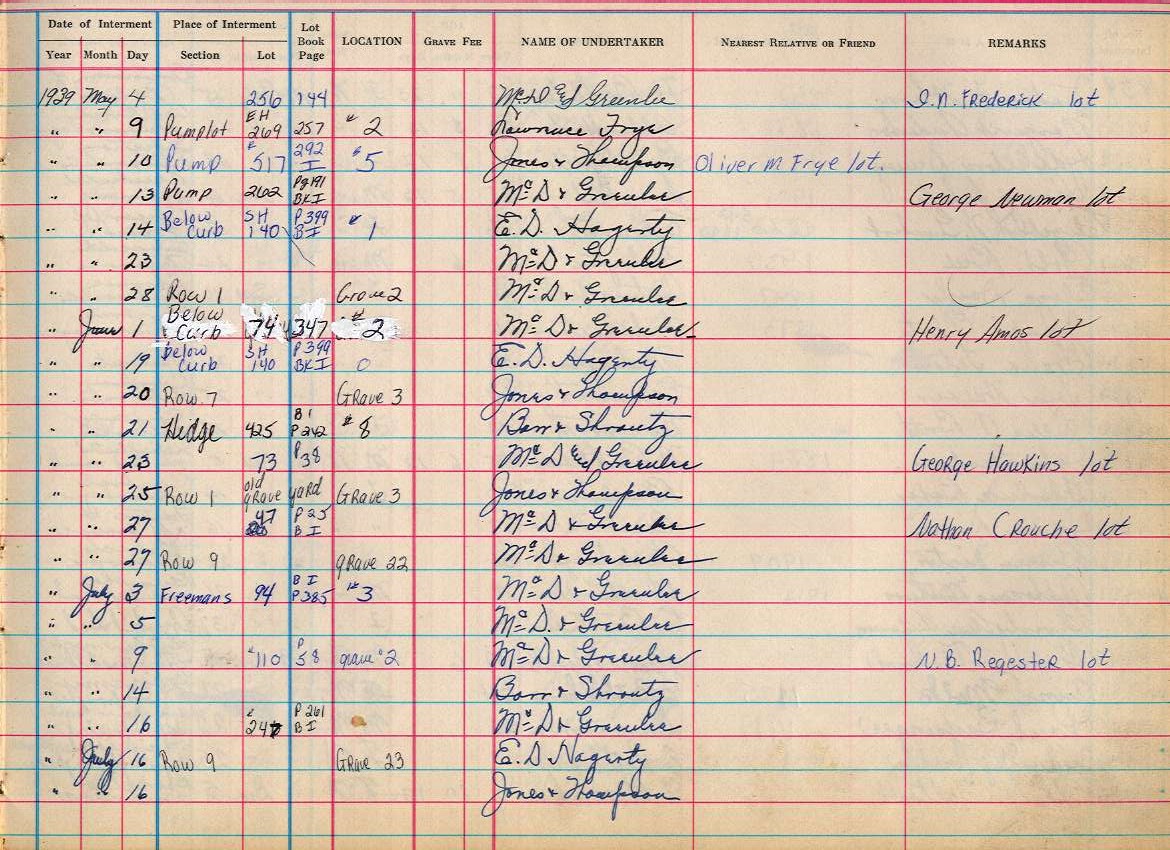 Date of Interment Place of Interment Lot Book Page LOCATION GRAVE FEE NAME OF UNDERTAKER NEAREST RELATIVE OR FRIEND REMARKS
Year Month Day Section Lot
1939 May 4 256 144 McD and Greenlee I.N. Frederick lot
" " 9 Pumplot EH 269 257 # 2 Lawrence Frye
" " 10 Pump # 517 292 I # 5 Jones & Thompson Oliver M Frye lot.
" " 13 Pump 262 Pg 191 BK I McD & Greenlee George Newman lot
" " 14 Below Curb SH 140 P 399 B I # 1 E. D. Hagerty
" " 23 McD & Greenlee
" " 28 Row 1 Grave 2 McD & Greenlee
" June 1 Below Curb 74 347 # 2 McD & Greenlee Henry Amos lot
" " 19 below Curb SH 140 P 399 BK I 0 E. D. Hagerty
" " 20 Row 7 Grave 3 Jones & Thompson
" " 21 Hedge 425 B I P 242 # 8 Barr & Shroutz
" " 23 73 P 38 McD and Greenlee George Hawkins lot
" " 25 Row 1 old grave yard Grave 3 Jones & Thompson
" " 27 47 P 25 B I McD & Greenlee Nathan Crouche lot
" " 27 Row 9 grave 22 McD & Greenlee
" July 3 Freemans 94 B I P 385 # 3 McD & Greenlee
" " 5 McD. & Greenlee
" " 9 # 110 P 58 grave # 2 McD & Greenlee N. B. Regester lot
" " 14 Barr & Shroutz
" " 16 # 247 P 261 B I McD & Greenlee
" July 16 Row 9 Grave 23 E. D. Hagerty
" " 16 Jones & Thompson